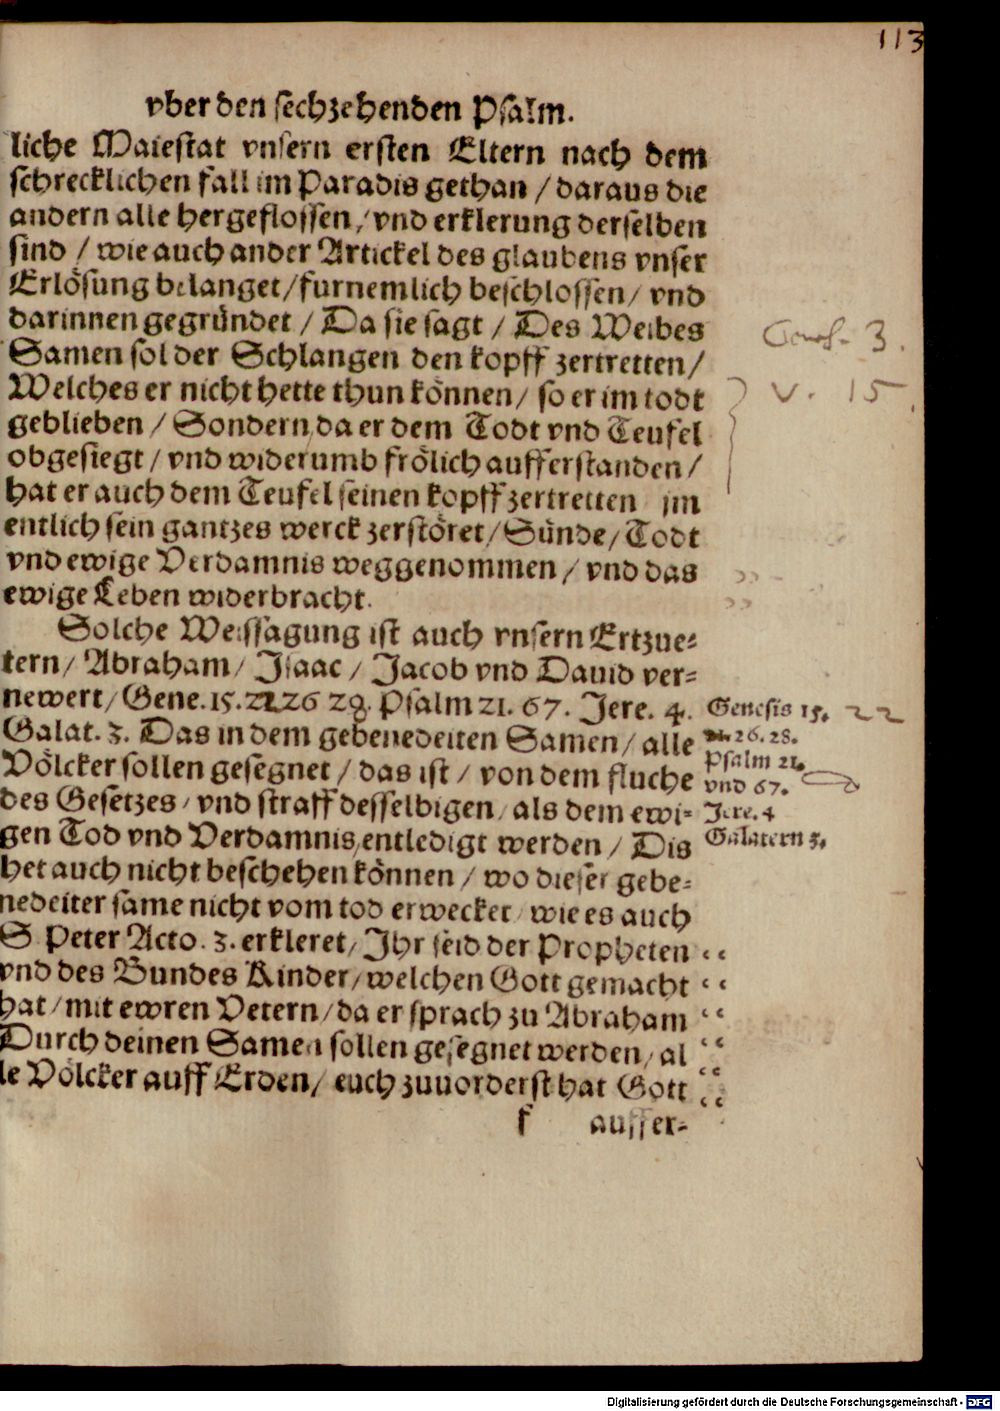 113
vber den sechzehenden Psalm.
liche Maiestat vnsern ersten Eltern nach dem
schrecklichen fall im Paradis gethan / daraus die
andern alle hergeflossen / vnd erklerung derselben
sind / wie auch ander Artickel des glaubens vnser
Erlösung belanget / furnemlich beschlossen / vnd
darinnen gegründet / Da sie sagt / Des Weibes
Samen sol der Schlangen den kopff zertretten /
Welches er nicht hette thun können / so er im todt
geblieben / Sondern da er dem Todt vnd Teufel
obgesiegt / vnd widerumb frölich aufferstanden /
hat er auch dem Teufel seinen kopff zertretten jm
entlich sein gantzes werck zerstöret / Sünde / Todt
vnd ewige Verdamnis weggenommen / vnd das
ewige Leben widerbracht.
3.
v. 15
Solche Weissagung ist auch vnsern Ertzue-
tern / Abraham / Isaac / Jacob vnd Dauid ver-
newert / Gene. 15. 22 26 28. Psalm 21. 67. Jere. 4.
Galat. 3. Das in dem gebenedeiten Samen / alle
Völcker sollen gesegnet / das ist / von dem fluche
des Gesetzes / vnd straff desselbigen / als dem ewi-
gen Tod vnd Verdamnis entledigt werden / Dis
het auch nicht beschehen können / wo dieser gebe-
nedeiter same nicht vom tod erwecket / wie es auch
S. Peter Acto. 3. erkleret / Ihr seid der Propheten
vnd des Bundes Kinder / welchen Gott gemacht
hat / mit ewren Vetern / da er sprach zu Abraham
Durch deinen Samen sollen gesegnet werden / al
le Völcker auff Erden / euch zuuorderst hat Gott
k auffer-
Genesis 15. 22
26. 28.
Psalm 21.
vnd 67.
Jere. 4
Galatern 3.
Digitalisierung gefördert durch die Deutsche Forschungsgemeinschaft - DFG